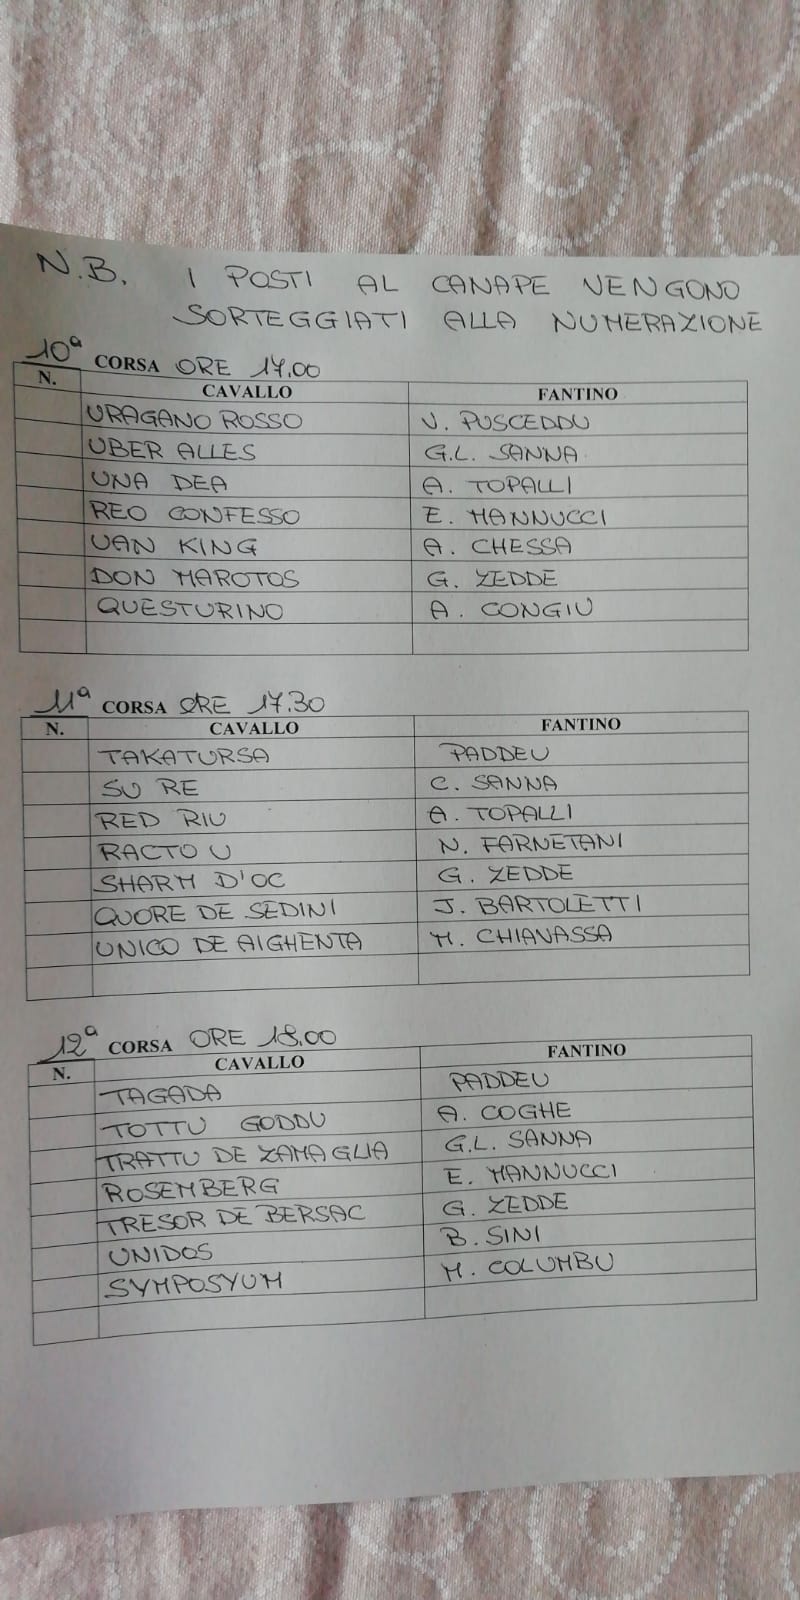 N.B. I POSTI AL CANAPE VENGONO
SORTEGGIATI ALLA NUMERAZIONE
10ª CORSA ORE 17.00
N. CAVALLO FANTINO
URAGANO ROSSO V. PUSCEDDU
UBER ALLES G.L. SANNA
UNA DEA A. TOPALLI
REO CONFESSO E. MANNUCCI
VAN KING A. CHESSA
DON MAROTOS G. ZEDDE
QUESTURINO A. CONGIU
11ª CORSA ORE 17.30
N. CAVALLO FANTINO
TAKATURSA PADDEU
SU RE C. SANNA
RED RIU A. TOPALLI
RACTO U N. FARNETANI
SHARM D'OC G. ZEDDE
QUORE DE SEDINI J. BARTOLETTI
UNICO DE AIGHENTA M. CHIAVASSA
12ª CORSA ORE 18.00
N. CAVALLO FANTINO
TAGADA PADDEU
TOTTU GODDU A. COGHE
TRATTU DE ZAMAGLIA G.L. SANNA
ROSEMBERG E. MANNUCCI
TRESOR DE BERSAC G. ZEDDE
UNIDOS B. SINI
SYMPOSYUM M. COLUMBU